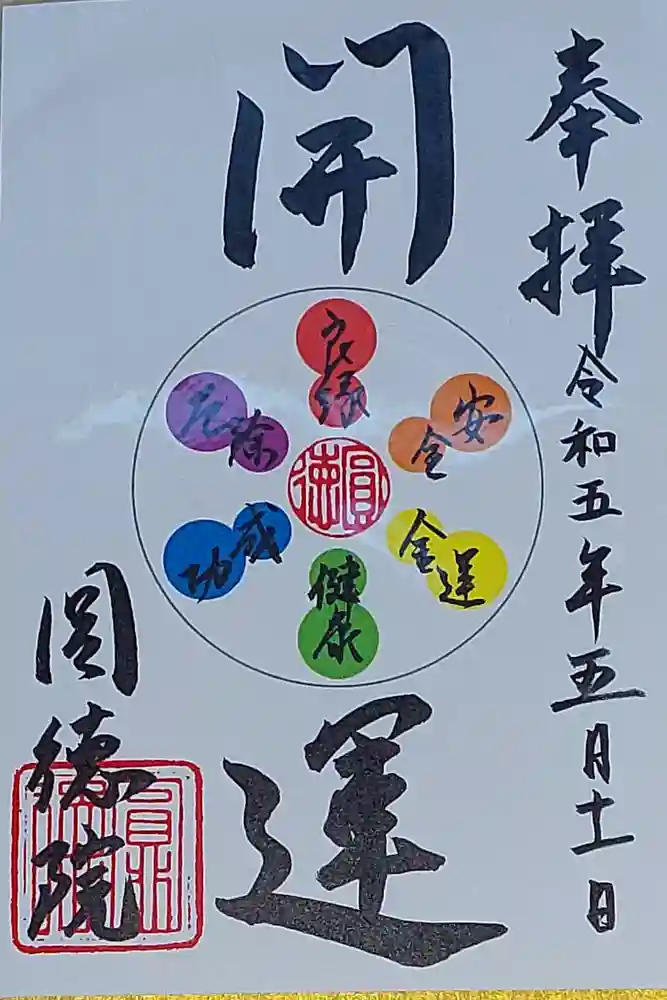 奉拝
令和五年五月十一日
開運
良縁
安全
金運
健康
成功
厄除
圓徳
圓徳院